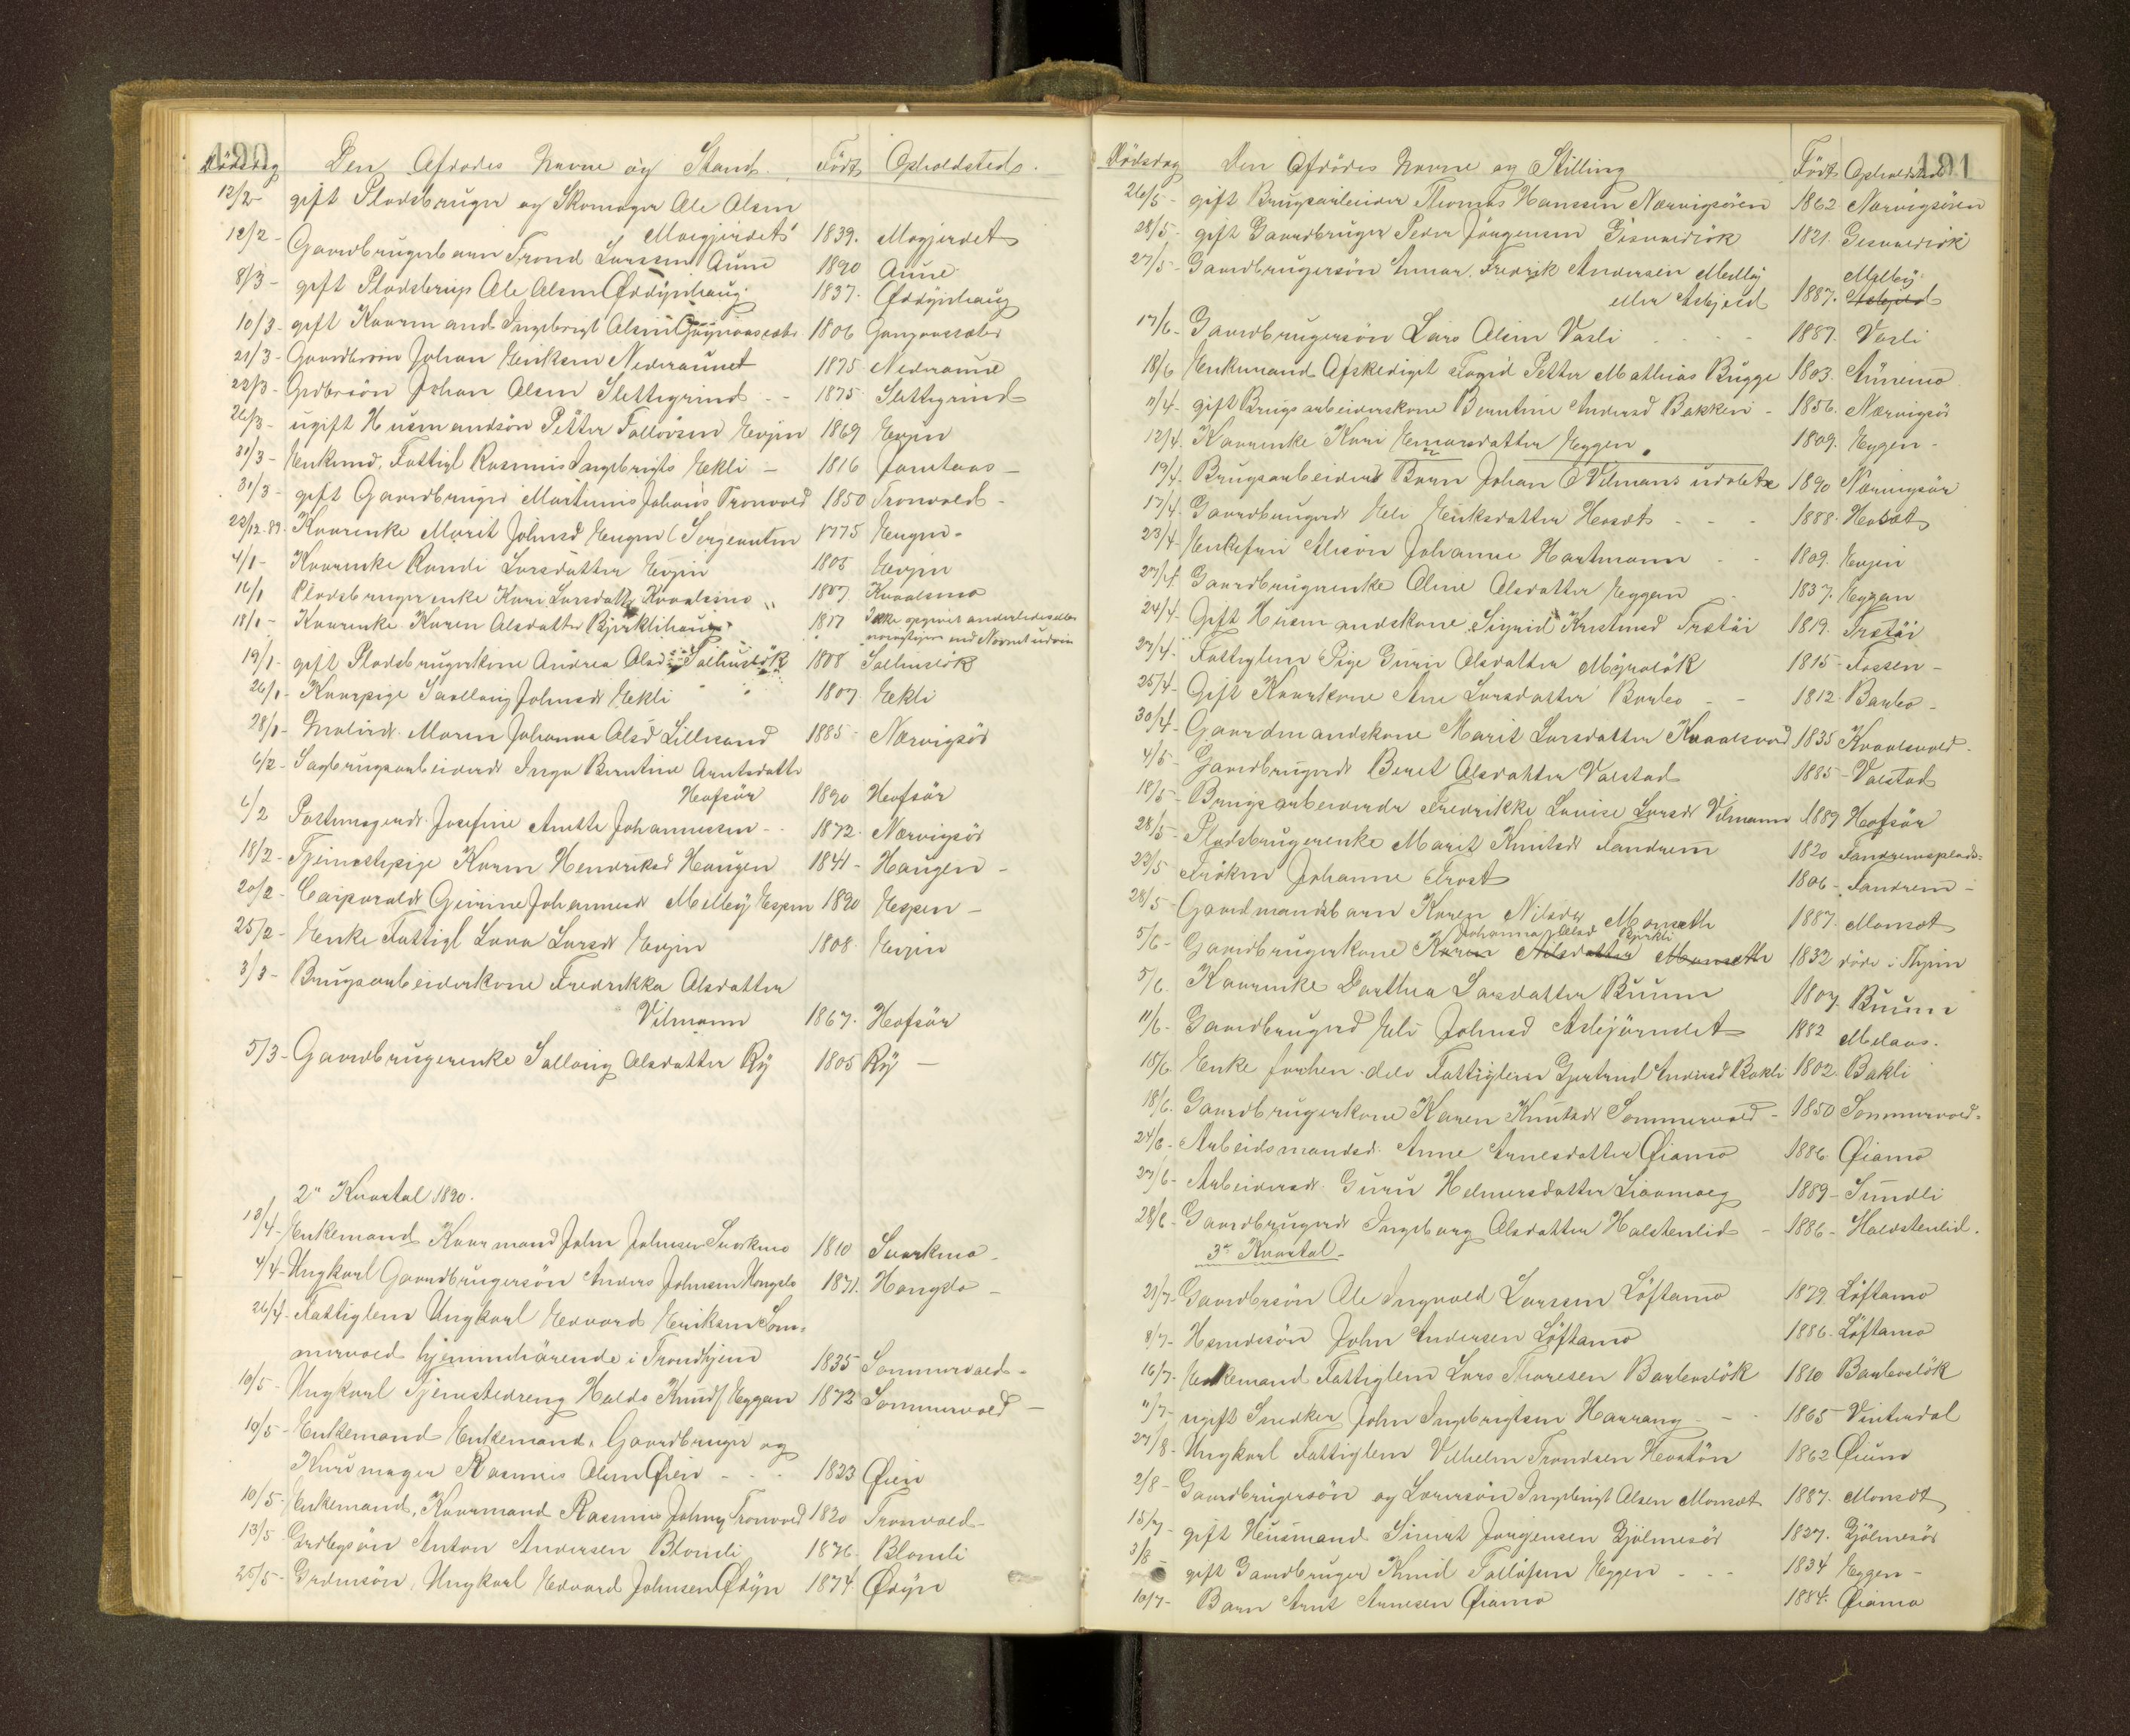 190
Dödsdag Den Afdödes Navne og Stand. Födt Opholdsted.
12/2 - gift Pladsbruger og Skomager Ole Olsen
Moegjerdet 1839. Mogjerdet
12/2 - Gaardbrugerbarn Trond Larssen Aune 1890 Aune
8/3 - gift Pladsbrug Ole Olsen Oddynhaug 1837. Oddynhaug
10/3 - gift Kaarmand Ingebrigt Olsen 1806
21/3 - Johan Eriksen Nederaunet 1875 Nederaune
22/3 - Grdbrsön Johan Olsen Slettegrind - - 1875 Slettegrind
26/3 - ugift Husmandsön Petter Evjen 1869 Evjen
31/3 - Enkemd. Fattigl Rasmus Ingebrigts Ekli - 1816
31/3 - gift Gaardbruger Martinus Johans Tronvold 1850 Tronvold -
22/12-89. Kaarenke Marit Johnsd Eugen (Sergeanten 1775 Eugen -
4/1 - Kaarenke Randi Larsdatter Evjen 1808 Evjen
16/1 Pladsbrugerenke Kari Larsdatter Kvaalsmo " 1807. Kvaalsmo
18/1 - Kaarenke Karen Olsdatter Bjerklihaug 1817 Ikke opgivet anderledes
19/1 - gift Pladsbrugerkone Andrea Olsd Solhuslök 1808 Solhuslök
26/1 - Kaarpige Johnsdr Ekli 1807. Ekli
28/1 - Malerdr. Maren Johanna Olsd Lillesand 1885 - Nærvigsör
6/2 - Sagbrugsarbeiderdr Inga Berntine Arntsdatter
Hofsör 1890 Hofsör
6/2 Postmesterdr. Josefine Anette Johannessen - - 1872. Nærvigsör
18/2 - Tjenestepige Karen Henriksd Haugen 1841 - Haugen -
20/2 - Corporaldr Johannesdr Melby Espen 1890 Espen -
25/2 - Enke Fattigl Lava Larsdr Evjen 1808. Evjen
3/3 - Brugsarbeiderkone Fredrikka Olsdatter
Vilmann 1867. Hofsör
5/3 - Gaardbrugerenke Salloug Olsdatter Ry 1805 Ry -
2" Kvartal 1890.
13/4 - Enkemand Kaarmand John Johnsen Svorkmo 1810 Svorkmo -
4/4 - Ungkarl Gaardbrugersön Anders Johnsen Hongslo 1871. Hongslo -
26/4 - Fattiglem Ungkarl Edvard Eriksen Som-
mervold hjemmehörende i Trondhjem 1835 Sommervold -
10/5 - Ungkarl Tjenestedreng Haldo Knuds Eggan 1872 Sommervold -
19/5 - Enkemand Enkemand. Gaardbruger og
Kurvmager Rasmus Olsen Öien - - - 1823 Öien
10/5 - Enkemand, Kaarmand Rasmus Johns Tronvold 1820 Tronvold -
13/5 - Grdbrgsön Anton Andersen Blomli 1876. Blomli
25/5 - Grdmsön, Ungkarl Edvard Johnsen Ödyn 1874 Ödyn
191
Dödsdag Den Afdödes Navne og Stilling Födt Opholdsted
26/5 - gift Brugsarbeider Thomas Hanssen Nærvigsören 1862 Nærvigsören
28/5 - gift Gaardbruger Peder Jörgensen 1821.
27/5 - Gaardbrugersön Einar Fredrik Andersen Melby Melby
eller Asbjerd 1887. Asbjerd
17/6 - Gaardbrugersön Lars Olsen Vasli - - - 1887. Vasli
18/6 Enkemand Afskediget Foged Petter Mathias Bugge 1803. Aunemo
11/4 - gift Brugsarbeiderskone Berntine Andersd Bakken - 1856. Nærvigsör
12/4. Kaarenke Kari Einarsdatter Eggen 1809. Eggen -
19/4. Brugsarbeiders Barn Johan O Vilmans udöbte 1890 Nærvigsör
17/4. Gaardbrugerdr Eli Eriksdatter Hosæt - - - 1888. Hosæt
23/4 - Enkefru Alison Johanne Hartmann - - 1809. Evjen
27/4. Gaardbrugerenke Oline Olsdatter Eggan - 1837. Eggan
24/4. Gift Husmandskone Sigrid Kristensd Træthöi 1819. Træthöi
27/4. Fattiglem Pige Guru Olsdatter Myrslök 1815 - Fossen -
25/4 - Gift Kaarkone Ane Larsdatter Barbo - - 1812. Barbo -
30/4 - Gaardmandskone Marit Larsdatter Kvaalsvold 1835 Kvaalsvold -
4/5 - Gaardbrugerdr Beret Olsdatter Valstad 1885 - Valstad
18/5 - Brugsarbeiderdr Fredrikke Louise Larsdr Vilmann 1889 Hofsör
28/5 - Pladsbrugerenke Marit Knutsdr Fandrem 1820 Fandremsplads -
23/5 Fröken Johanne Trost 1806 - Fandrem -
28/5 - Gaardmandsbarn Karen Nilsdr Monseth 1887. Monsæt
Johanna Olsd Bjerkli
5/6 - Gaardbrugerkone Karen Nilsdatter Monseth 1832 döde i Thjem
5/6. Kaarenke Dorthea Larsdatter Buum 1807. Buum
11/6 - Gaardbrugerd Eli Johnsd Asbjörnslet 1882 Melaas.
15/6. Enke forhen dels Fattiglem Gjertrud Andersd Bakli 1802. Bakli
18/6. Gaardbrugerkone Karen Knutsdr Sommervold - 1850 Sommervold -
24/6 - Arbeidsmandsd. Anne Arnesdatter Öiamo 1886. Öiamo
27/6 - Arbeidersdr. Guru Helmersdatter 1889 - Sundli
28/6 - Gaardbrugerdr Ingeborg Olsdatter Halstenlid - 1886 - Halstenlid.
3' Kvartal -
21/7 - Gaardbrsön Ole Ingvald Larssen Löftamo 1879 Löftamo
8/7 - Hsmdssön John Andersen Löftamo 1886. Löftamo
16/7 - Enkemand Fattiglem Lars Thoresen Barboslök 1810 Barboslök
11/7 - ugift Snedker John Ingebrigtsen Harrang - - 1865 - Vinterdal
27/8 - Ungkarl Fattiglem Vilhelm Trondsen Hostön 1862
2/8 - Gaardbrugersön og Lærersön Ingebrigt Olsen Monsæt 1887. Monsæt
15/7 - gift Husmand Sivert Jörgensen Gjölmesör 1827. Gjölmesör
3/8 - gift Gaardbruger Knud Tollefsen Eggen - - - 1834 Eggen -
10/7 - Barn Arnt Arnesen Öiamo 1884. Öiamo